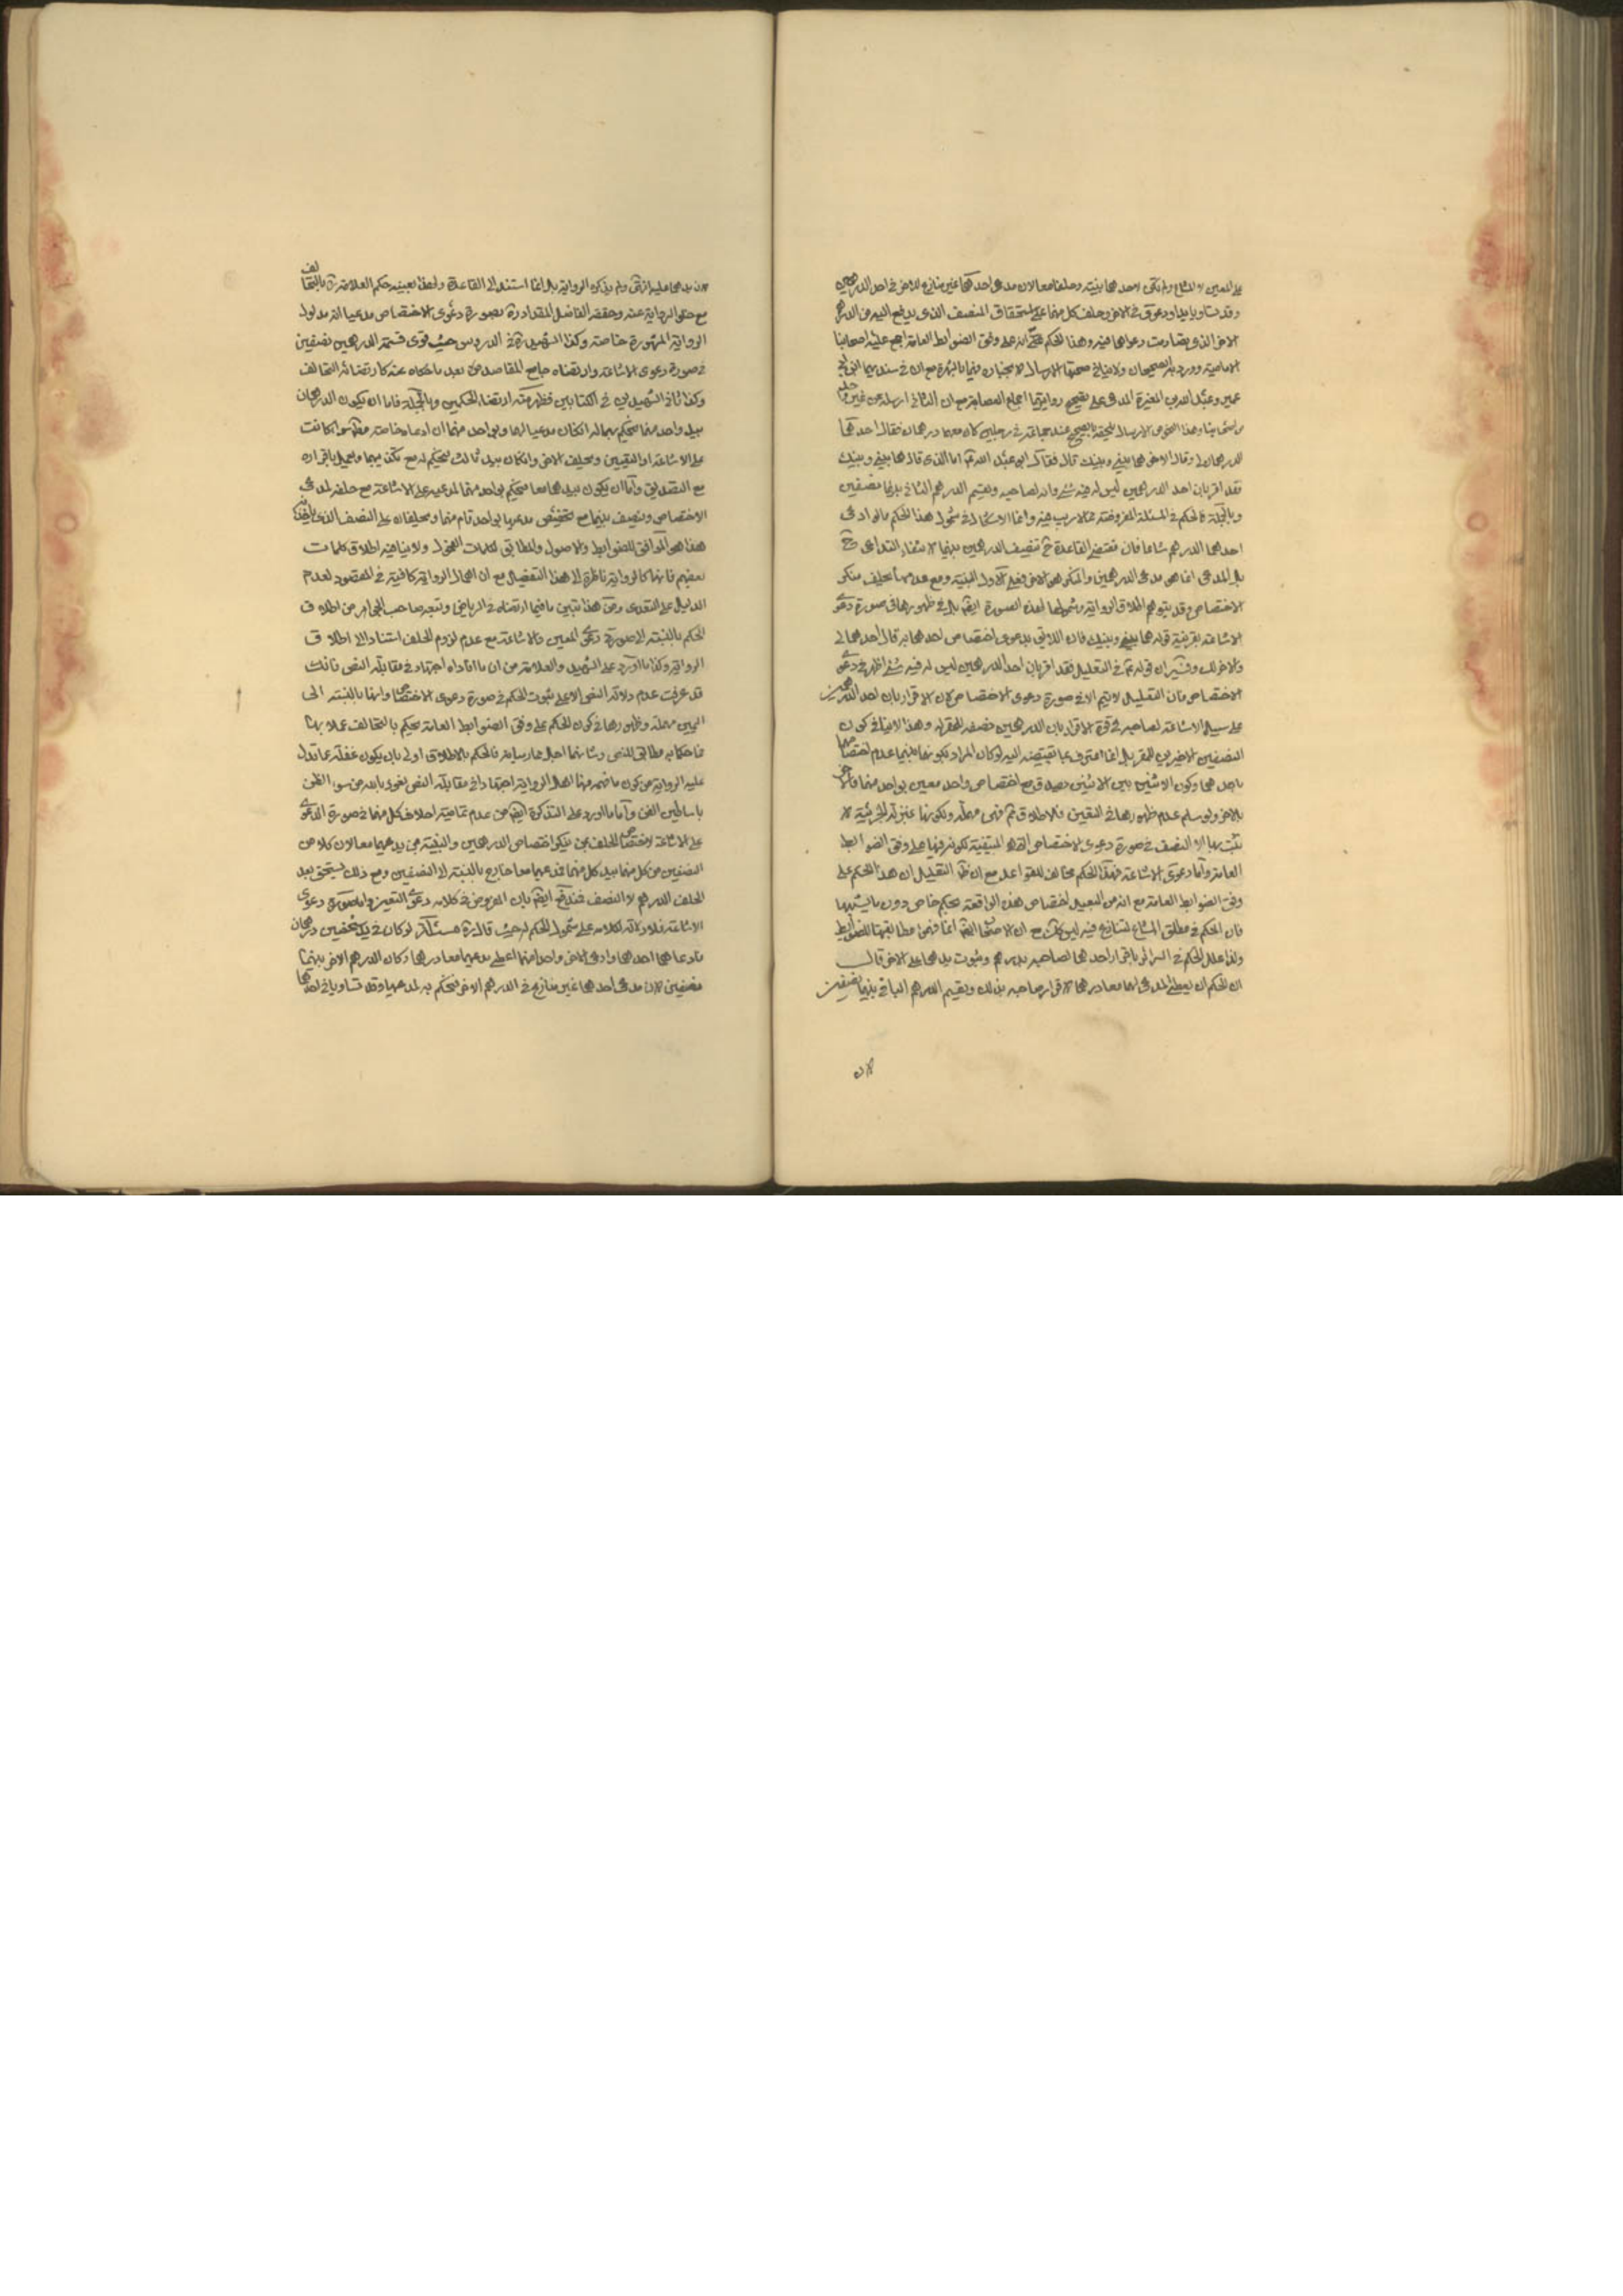 على المعين لا المشاع ولم تكن لاحدهما بينة وحلفا معا لان مدعى احدهما غير منازع للاخر فى احد الدرهمين
وقد تساويا يدا ودعوى فى الاخر وحلف كل منهما على استحقاق النصف الذى يدفع اليه من الدرهم
الاخر الذى تصادمت دعواهما فيه وهذا الحكم مع انه على وفق الضوابط العامة اجمع عليه اصحابنا
الامامية وورد به الصحيحان ولا ينافى صحتهما الارسال لانجباره فيهما بالشهرة مع ان فى سنديهما ابن ابى
عمير وعبد الله بن المغيرة المدعى على تصحيح روايتهما اجماع العصابة مع ان الثانى ارسله عن غير واحد
من اصحابنا وهذا النحو من الارسال ملحقه بالصحيح عند جماعة فى رجلين كان معهما درهمان فقال احدهما
الدرهمان لى وقال الاخر هما بينى وبينك قال فقال ابو عبد الله ع اما الذى قال هما بينى وبينك
فقد اقر بان احد الدرهمين ليس له فيه شئ وانه لصاحبه ويقسم الدرهم الثانى بينهما نصفين
وبالجملة فالحكم فى المسئلة المفروضة مما لا ريب فيه وانما الاشكال فى شمول هذا الحكم ما لو ادعى
احدهما الدرهم مشاعا فان مقتضى القاعدة ح تنصيف الدرهمين بينهما لانتفاء التداعى ح
بل المدعى انما هو مدعى الدرهمين والمنكر هو الاخر فعلى الاول البينة ومع عدمها يحلف منكر
الاختصاص وقد يتوهم اطلاق الرواية وشمولها لهذه الصورة ايضا بل فى ظهورها فى صورة دعوى
الاشاعة بقرينة قوله هما بينى وبينك فان اللايق بدعوى اختصاص احدهما به قال احدهما لى
والاخر لك وفيه ان قوله ع فى التعليل فقد اقر بان احد الدرهمين ليس له فيه شئ اظهر فى دعوى
الاختصاص فان التعليل لا يتم الا فى صورة دعوى الاختصاص لان الاقرار بان احد الدرهمين
على سبيل الاشاعة لصاحبه فى قوة الاقرار بان الدرهمين نصفه للمقر له وهذا لا ينافى كون
النصفين الاخيرين للمقر بل انما اعترف بما نقتضيه اليد لو كان المراد بكونهما بينهما عدم اختصاصهما
باحدهما وكون الاثنين بين الاثنين يصدق مع اختصاص واحد معين بواحد منهما والاخر
بالاخر ولو سلم عدم ظهورها فى التعيين فلا اطلاق ثم فهى مهملة ولكونها بمنزلة الجزئية لا
تثبت بها الا النصف فى صورة دعوى الاختصاص القدر المتيقنة لكونه فيها على وفق الضوابط
العامة واما دعوى الاشاعة فهذا الحكم مخالف للقواعد مع ان ظ التعليل ان هذا الحكم على
وفق الضوابط العامة مع انه من البعيد اختصاص هذه الواقعة بحكم خاص دون ما يشبهها
فان الحكم فى مطلق المشاع المتنازع فيه ليس كذلك مع ان الاصحاب ايضا انما فهموا مطابقتها للضوابط
ولذا علل الحكم فى السرائر باقرار احدهما لصاحبه بدرهم وثبوت يدهما على الاخر قال
ان للحكم ان يعطى المدعى لهما معا درهما لاقرار صاحبه بذلك ويقسم الدرهم الباقى بينهما نصفين
لان
لان يدهما عليه انتهى ولم يذكره الرواية بل انما استند الى القاعدة ولهذا بعينه حكم العلامة بالتحالف
مع حكمه الرواية عنه وحقه الفاضل المقداد ره بصورة دعوى الاختصاص مدعيا انه مدلول
الرواية المشهورة خاصة وكذا الشهيد ره فى الدروس حيث قوى قسمة الدرهمين نصفين
فى صورة دعوى الاشاعة وارتضاه جامع المقاصد بعد ما حكاه عنه كارتضائه التحالف
وكذا ثانى الشهيدين فى الكتابين فظهر منه ارتضاء الحكمين وبالجملة فاما ان يكون الدرهمان
بيد واحد منهما فيحكم بهما له ان كان مدعيا لهما وبواحد منهما ان ادعاه خاصة سواء كانت
على الاشاعة او التعيين ويحلف الاخر وان كان بيد ثالث يحكم له مع تكذيبهما ويعمل باقراره
مع التصديق واما ان يكون بيدهما معا فيحكم بواحد منهما لمدعيه على الاشاعة مع حلفه لمدعى
الاختصاص وينصف بينهما مع تخصيص مدعيها بواحد تام منهما ويحلفان على النصف الذى ياخذه
هذا هو الموافق للضوابط والاصول والمطابق لكلمات الفحول ولا ينافيه اطلاق كلمات
بعضهم فانها كالرواية ناظرة الى هذا التفصيل مع ان اجمال الرواية كافية فى المقصود لعدم
الدليل على التعدى ومن هذا تبين ما فيما ارتضاه فى الرياض وتبعه صاحب الجواهر من اطلاق
الحكم بالنسبة الى صورتى دعوى المعين والاشاعة مع عدم لزوم الحلف استنادا الى اطلاق
الرواية وكذا ما اورده على الشهيد والعلامة من ان ما افاداه اجتهاد فى مقابلة النص فانك
قد عرفت عدم دلالة النص الا على ثبوت الحكم فى صورة دعوى الاختصاص وانها بالنسبة الى
اليمين مهملة وظهورها فى كون الحكم على وفق الضوابط العامة يحكم بالتحالف عملا بها
فما حكما به مطابق للنص وشانهما اجل مما رسما به فالحكم بالاطلاق اولى بان يكون غفلة عما تدل
عليه الرواية من كون ما فهمه منها اهل الرواية اجتهادا فى مقابلة النص نعوذ بالله من سوء الظن
باساطين الفن واما ما اورد على التذكرة ايضا من عدم تمامية احلاف كل منهما فى صورة الدعوى
على الاشاعة لاختصاص الحلف بمن ينكر اختصاص الدرهمين والبينة بمن يدعيهما معا لان كلا من
النصفين من كل منهما بيد كل منهما فمدعيهما معا خارج بالنسبة الى النصفين ومع ذلك يستحق بعد
الحلف الدرهم لا النصف فمندفع ايضا بان المفروض فى كلامه دعوى التعيين واما صورة دعوى
الاشاعة فلا دلالة لكلامه على شمول الحكم له حيث قال ره مسئلة لو كان فى يد شخصين درهمان
فادعاهما احدهما وادعى الاخر واحدا منهما اعطى مدعيهما معا درهما وكان الدرهم الاخر بينهما
نصفين لان مدعى احدهما غير منازع فى الدرهم الاخر فيحكم به لمدعيهما وقد تساويا فى احدهما